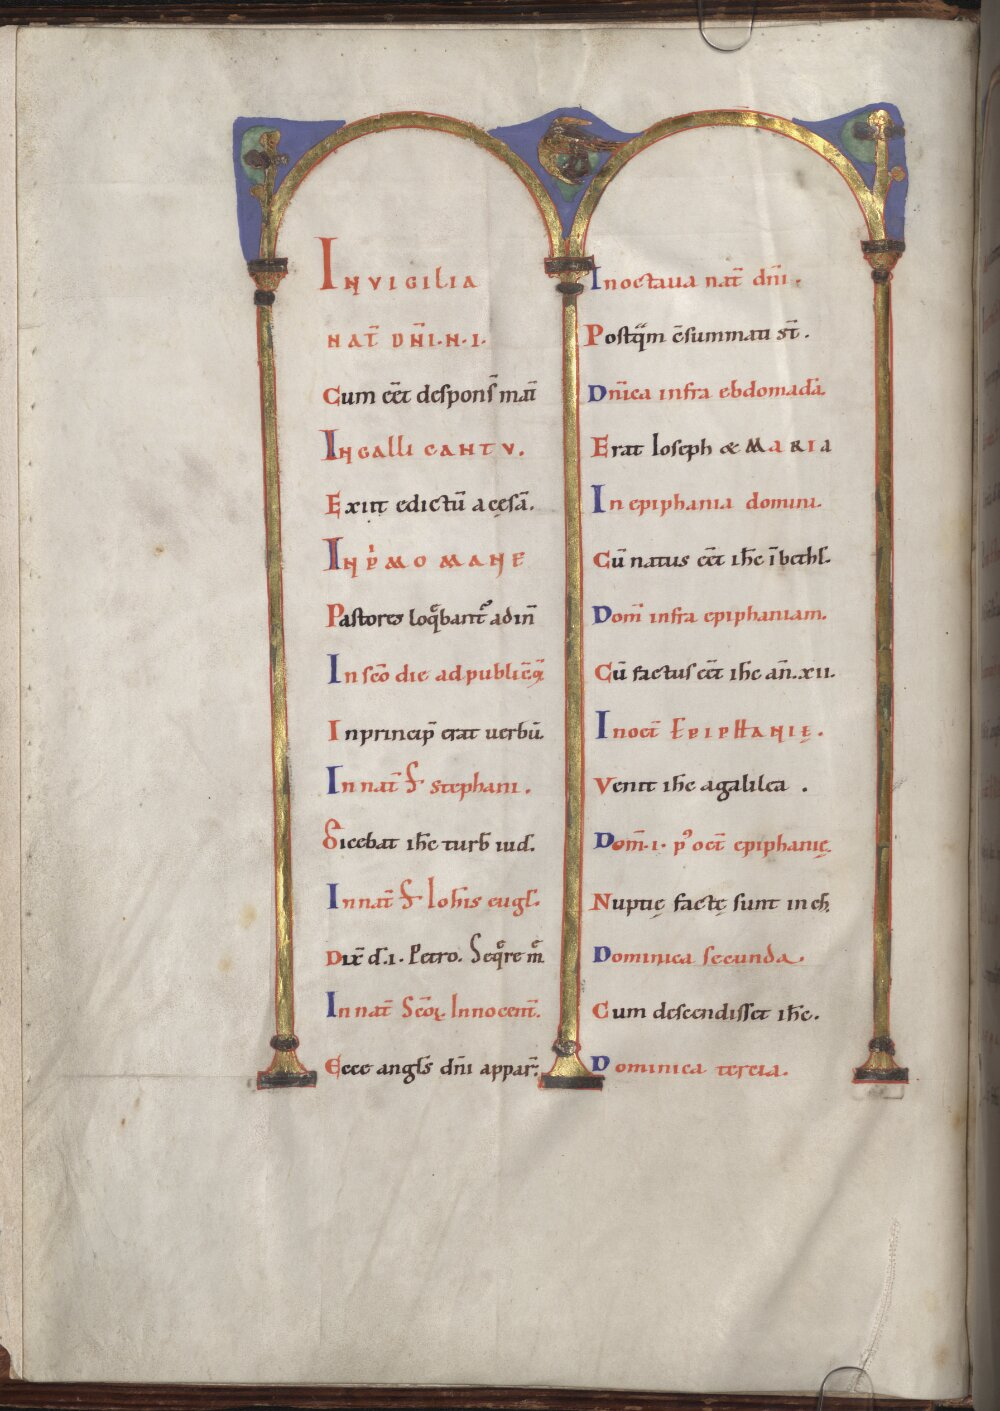 IN VIGILIA
NAT̄ DN̄I·N·I·
Cum eēt desponſ̄ mat̄
IN GALLI CANTV.
Exiit edictū a cęſā.
IN P̍MO MANE
Paſtores loq̄bant᷑ adin̄
In ſc̄o die ad publicā
Inprincip̄ erat uerbū.
In nat̄ S̄ stephani.
Dicebat ih̄c turb̄ iud̄.
In nat̄ S̄ Ioh̄is eugl̄.
Dix̄ d̄.i. Petro. Seq̄re m̄.
In nat̄ Sc̄oꝝ Innocent̄.
Ecce angl̄s dn̄i appar̄:
Inoctaua nat̄ dn̄i.
Postq̄m c̄summati st̄.
Dn̄ica infra ebdomadā.
Erat Ioseph & MARIA
In epiphania domini.
Cū natus eēt ih̄c ī bethl̄.
Dom̄ infra epiphaniam.
Cū factus eēt ih̄c an̄.xii.
In oct̄ EPIPHANIĘ.
Venit ih̄c agalilea .
Dom̄.i. p᷒ oct̄ epiphanię.
Nuptię factę sunt in ch̄.
Dominica secunda.
Cum descendisset ih̄c.
Dominica tercia.